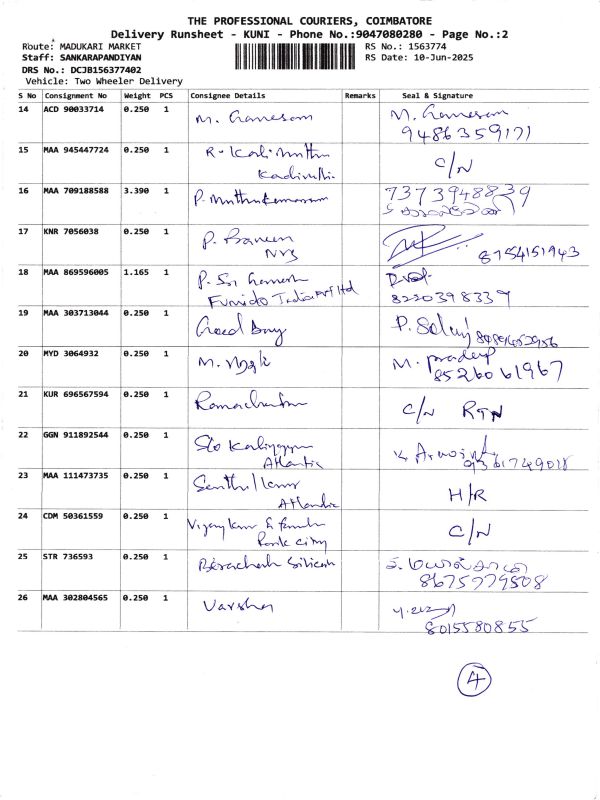 THE PROFESSIONAL COURIERS, COIMBATORE
Delivery Runsheet - KUNI - Phone No.:9047080280 - Page No.:2
Route: MADUKARI MARKET
RS No.: 1563774
Staff: SANKARAPANDIYAN
RS Date: 10-Jun-2025
DRS No.: DCJB156377402
Vehicle: Two Wheeler Delivery
S No Consignment No Weight PCS Consignee Details Remarks Seal & Signature
14 ACD 90033714 0.250 1 M. Ganesan M. Ganesan
9486359171
15 MAA 945447724 0.250 1 R. Kali Muthu C/N
16 MAA 709188588 3.390 1 P. Muthukumarasam 7373948839
17 KNR 7056038 0.250 1 P. Praveen
8754151943
18 MAA 869596005 1.165 1 P. Sri Ganesh
Fumido India Pvt ltd 8220398339
19 MAA 303713044 0.250 1 Good Day P. Selvi
20 MYD 3064932 0.250 1 M. M. Pradeep
8526061967
21 KUR 696567594 0.250 1 Ramachandran C/N RTN
22 GGN 911892544 0.250 1 S/o Kaliyappan
Atlantic 9361749018
23 MAA 111473735 0.250 1 Senthil Kumar H/R
Atlantic
24 CDM 50361559 0.250 1 Vijay Kumar C/N
Park City
25 STR 736593 0.250 1 Silicon
8675779508
26 MAA 302804565 0.250 1 Varsha
8015580855
4